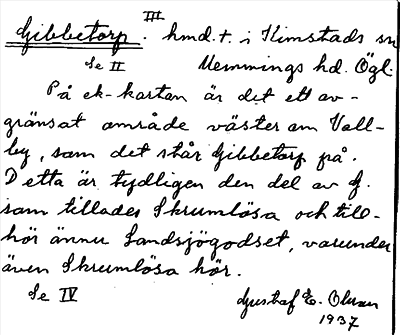 III
Gibbetorp. hmd. t. i Kimstads sn
Se II Memmings hd. Ögl.
På ek-kartan är det ett av-
gränsat område väster om Vall-
by, som det står Gibbetorp på.
Detta är tydligen den del av G.
som tillades Skrumlösa och till-
hör ännu Landsjögodset, varunder
även Skrumlösa hör.
Se IV Gustaf E. Olsson
1937